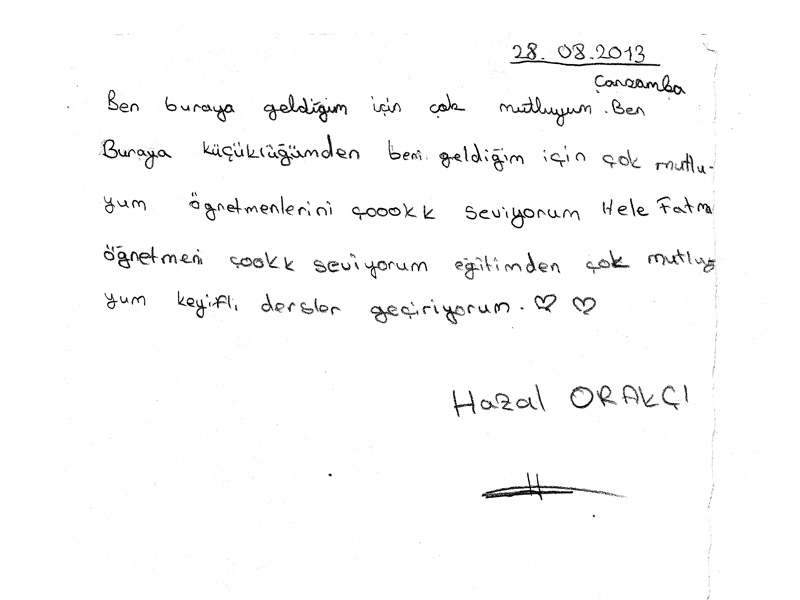 28.08.2013
Çarşamba
Ben buraya geldiğim için çok mutluyum. Ben
Buraya küçüklüğümden beni geldiğim için çok mutlu-
yum öğretmenlerini çoookk seviyorum Hele Fatma
öğretmeni çookk seviyorum eğitimden çok mutluy
yum keyifli dersler geçiriyorum. ♡ ♡
Hazal ORAKÇI